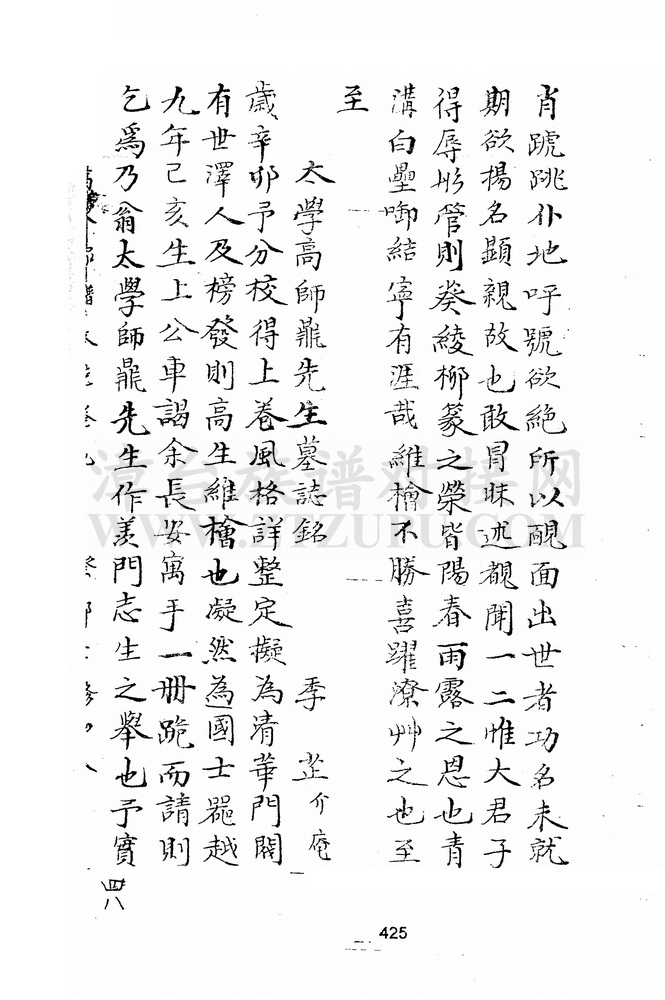 肖號跳仆地呼號欲絕所以靦面出世者功名未就
期欲揚名顯親故也敢冒昧述覩聞一二惟大君子
得辱彤管則癸綾柳篆之榮皆陽春雨露之恩也青
溝白壘啣結寧有涯哉維檜不勝喜躍潦艸之也至
至
太學高師鼎先生墓誌銘 季芷介庵
歲辛卯予分校得上卷風格詳整定擬為清華門閥
有世澤人及榜發則高生維檜也凝然為國士器越
九年己亥生上公車謁余長安寓手一冊跪而請則
乞為乃翁太學師鼎先生作羨門志生之舉也予實
四八
漳台族谱对接网
WWW.ZTZUPU.COM
425